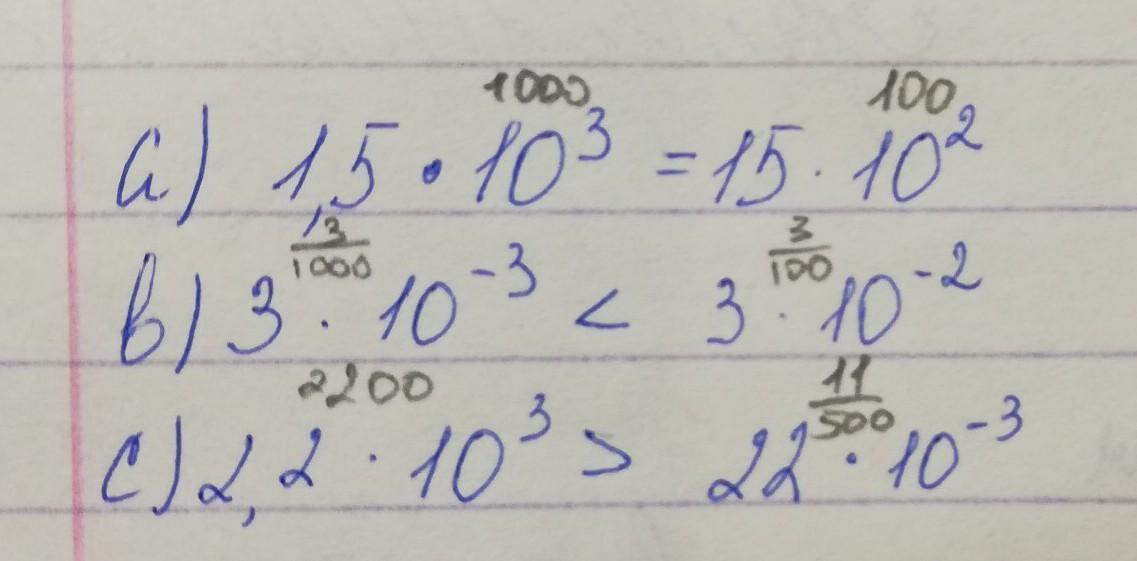 1000 100
a) 1,5 · 10³ = 15 · 10²
3/1000 3/100
b) 3 · 10⁻³ < 3 · 10⁻²
2200 11/500
c) 2,2 · 10³ > 22 · 10⁻³